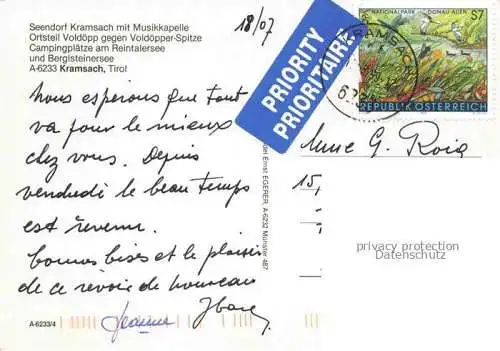 Seendorf Kramsach mit Musikkapelle
Ortsteil Voldöpp gegen Voldöpper-Spitze
Campingplätze am Reintalersee
und Berglsteinersee
A-6233 Kramsach, Tirol
18/07
PRIORITY
PRIORITAIRE
NATIONALPARK DONAU-AUEN S7
REPUBLIK ÖSTERREICH
KRAMSACH
Nous espérons que tout
va pour le mieux
chez vous. Depuis
vendredi le beau temps
est revenu.
bonnes bises et le plaisir
de ce revoir de nouveau
Jeanne
Mme G.
15,
Ernst EGERER, A-6232 Münster 487
privacy protection
Datenschutz
A-6233/4